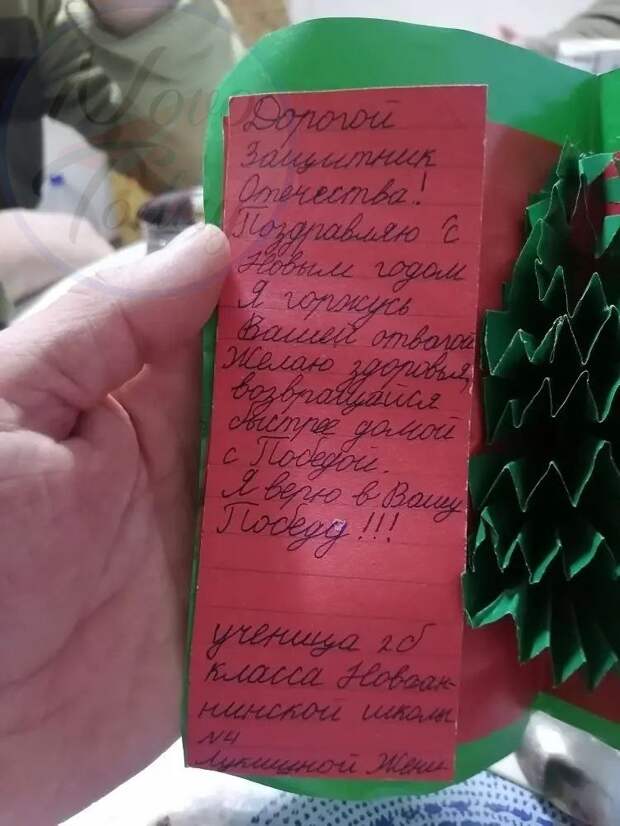 Дорогой
Защитник
Отечества!
Поздравляю С
Новым годом
Я горжусь
Вашей отвагой
Желаю здоровья,
возвращайся
быстрее домой
с Победой.
Я верю в Вашу
Победу!!!
ученица 2б
класса Новоан-
нинской школы
№4
Жени